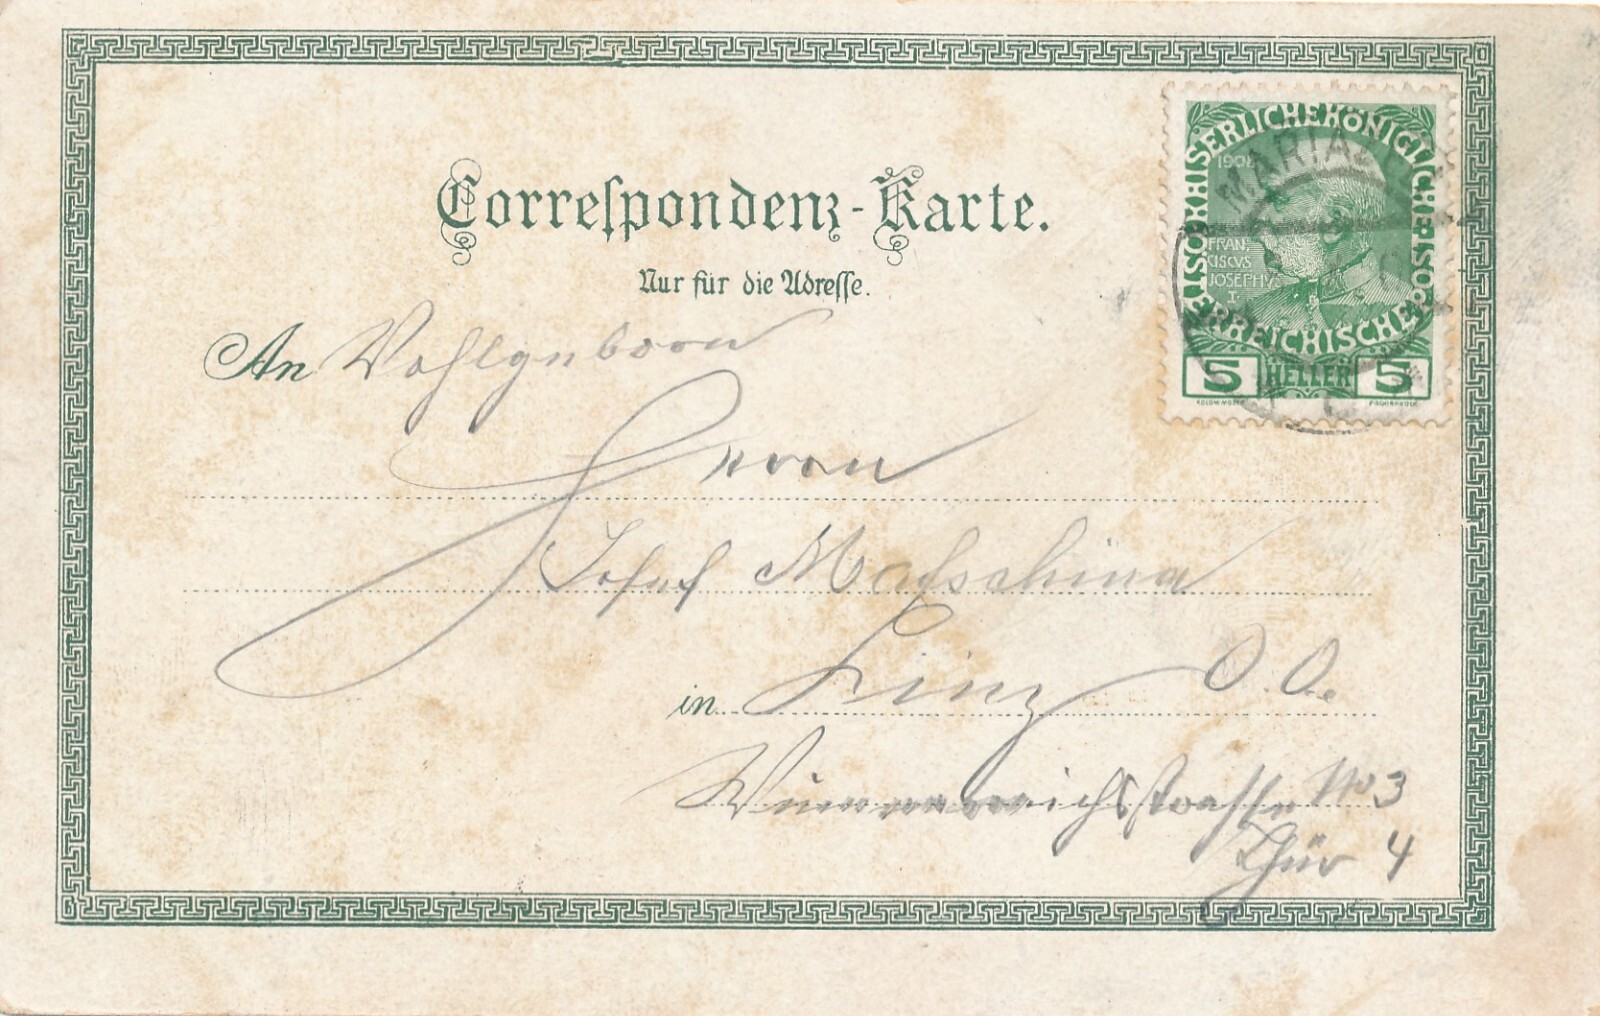 Correspondenz-Karte.
Nur für die Adresse.
KAISERLICHE KÖNIGLICHE ÖSTERREICHISCHE POST
1908
FRAN
CISCVS
JOSEPHVS
I
5 HELLER 5
MARIAZ
An Wohlgeboren
Herrn
Josef
in Linz O. O.
No 3
Thür 4